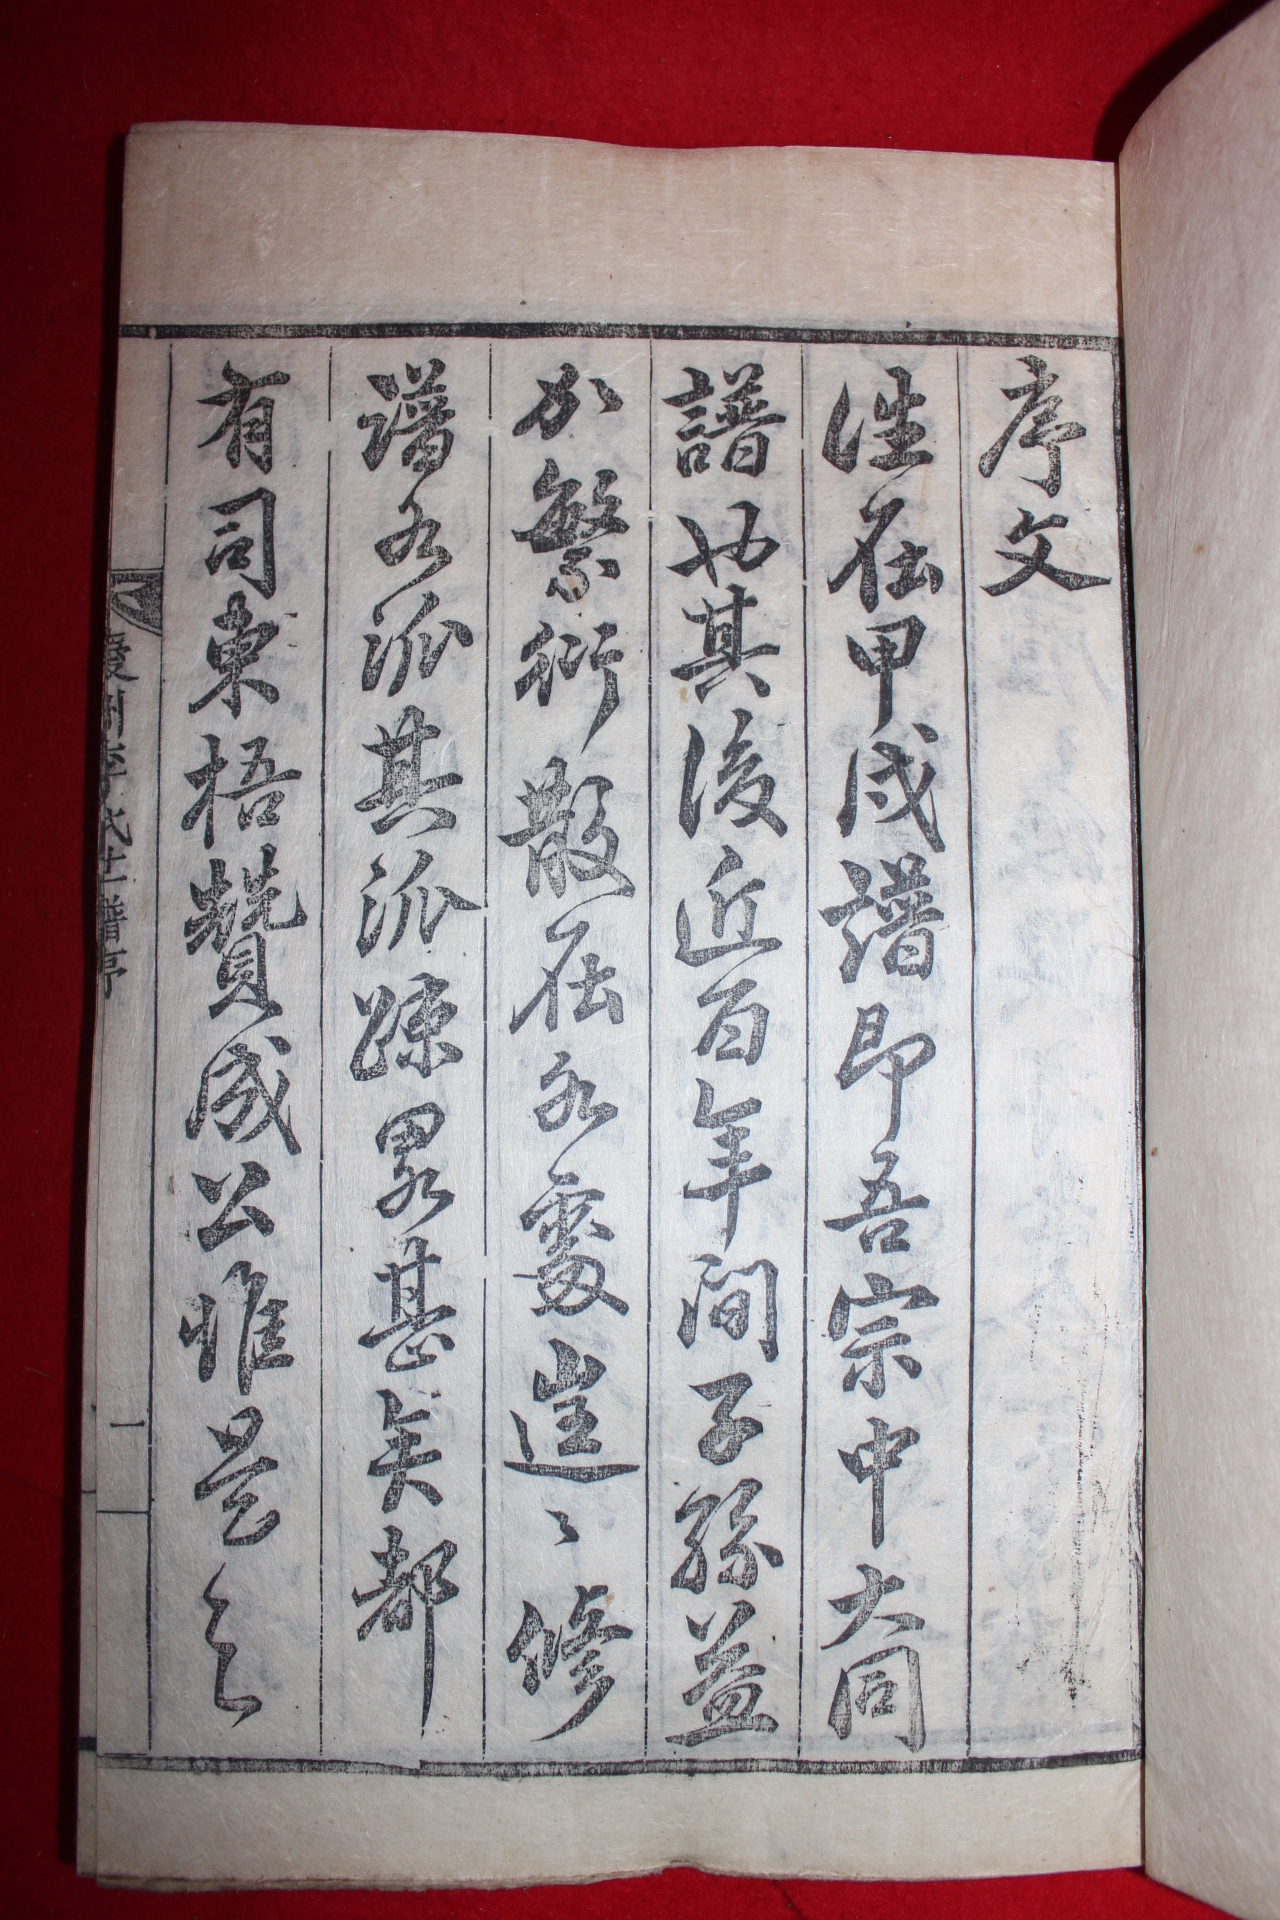 序文
往在甲戌譜即吾宗中大同
譜也其後近百年間子孫益
加繁衍散在各處修
譜各派其派疎畧甚矣都
有司東梧贊成公惟是之
李氏世譜序
一